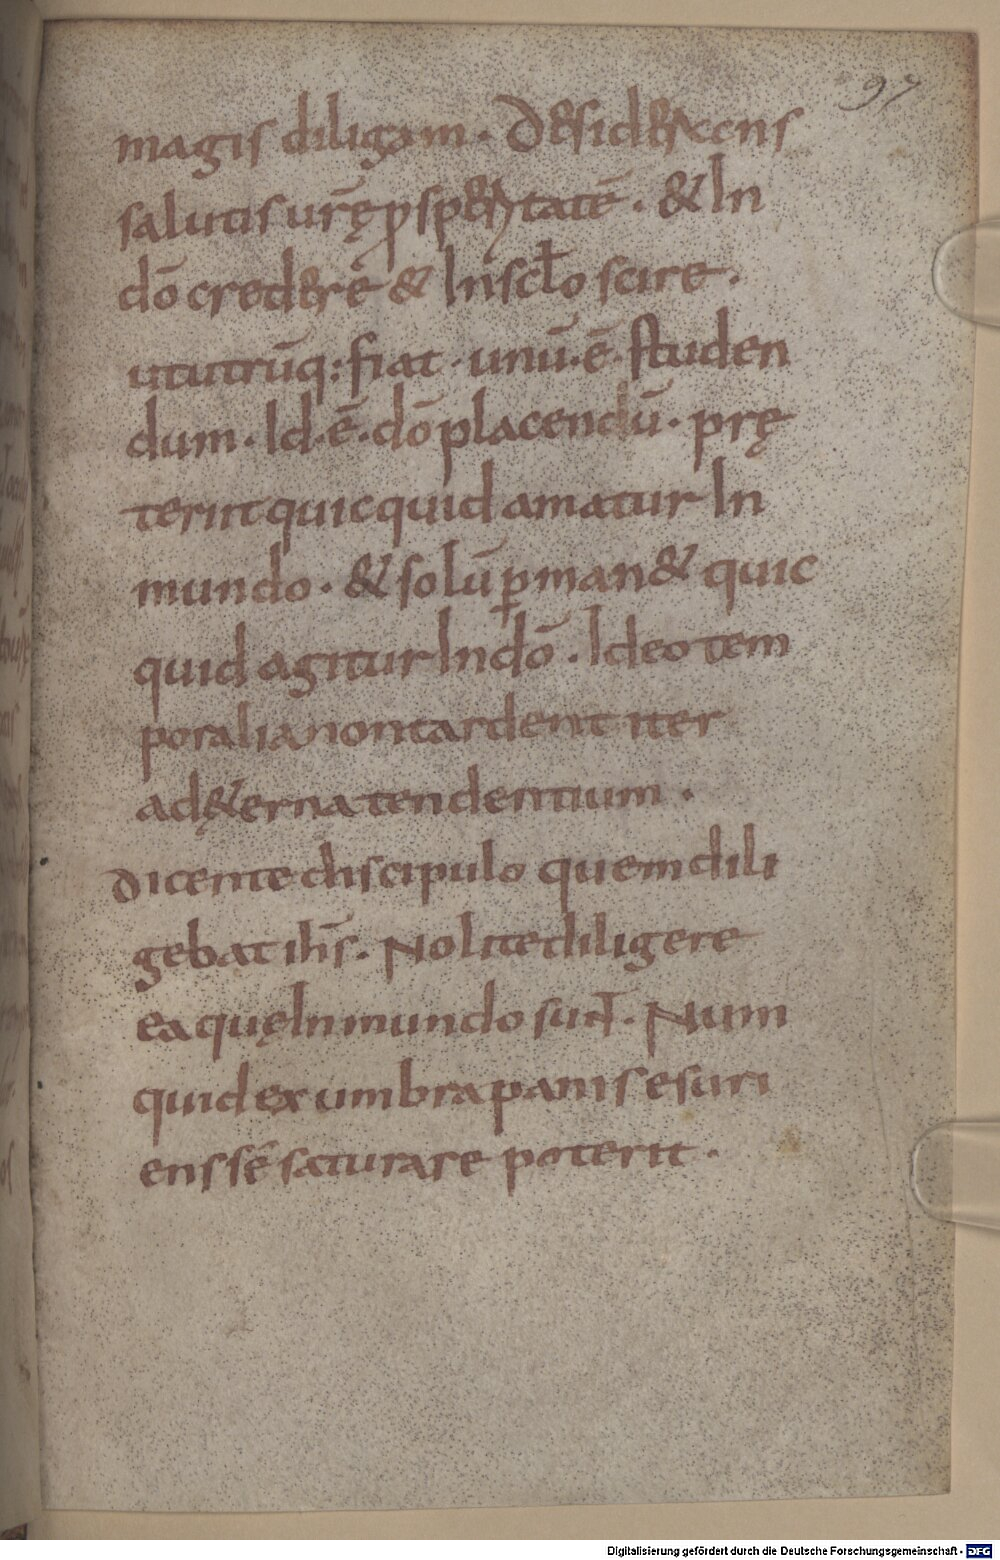 97
magis diligam. Desiderans
salutis urę̄ psperitatē. & In
dō crederē & In sclo scire.
ut utrūq: fiat. unū. ē. studen
dum. Id. ē. dō placendū. prę
teriit quicquid amatur In
mundo. & solū pman& quic
quid agitur In dō. Ideo tem
poralia non tardent iter
ad ę&erna tendentium.
Dicente discipulo quem dili
gebat ihs. Nolite diligere
ea quę In mundo sunt. Num
quid ex umbra panis esuri
ens sē saturare poterit.
Digitalisierung gefördert durch die Deutsche Forschungsgemeinschaft - DFG